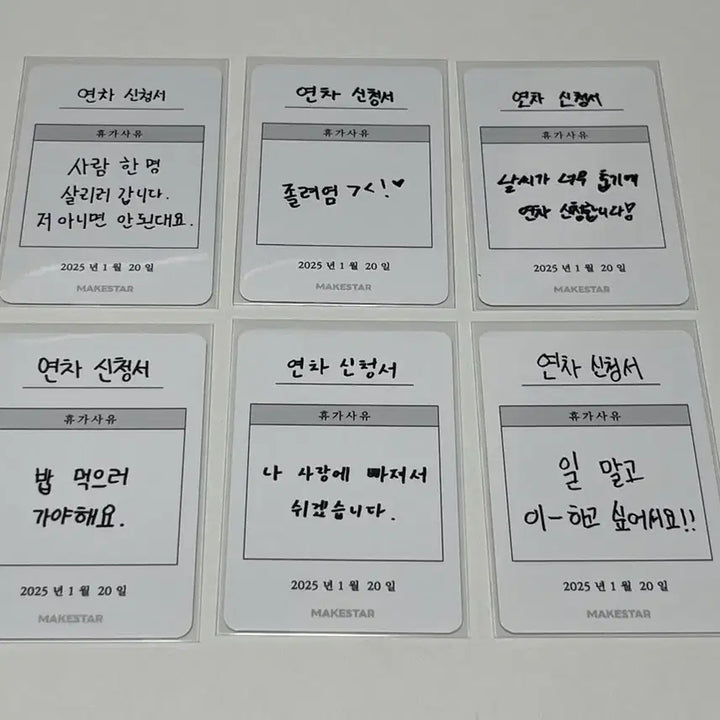 연차 신청서
휴가사유
사람 한 명
살리러 갑니다.
저 아니면 안된대요.
2025 년 1 월 20 일
MAKESTAR
연차 신청서
휴가사유
졸려염 ㄱ<!♥
2025 년 1 월 20 일
MAKESTAR
연차 신청서
휴가사유
날씨가 너무 좋기에
연차 신청합니다!
2025 년 1 월 20 일
MAKESTAR
연차 신청서
휴가사유
밥 먹으러
가야해요.
2025 년 1 월 20 일
MAKESTAR
연차 신청서
휴가사유
나 사랑에 빠져서
쉬겠습니다.
2025 년 1 월 20 일
MAKESTAR
연차 신청서
휴가사유
일 말고
이-하고 싶어서요!!
2025 년 1 월 20 일
MAKESTAR